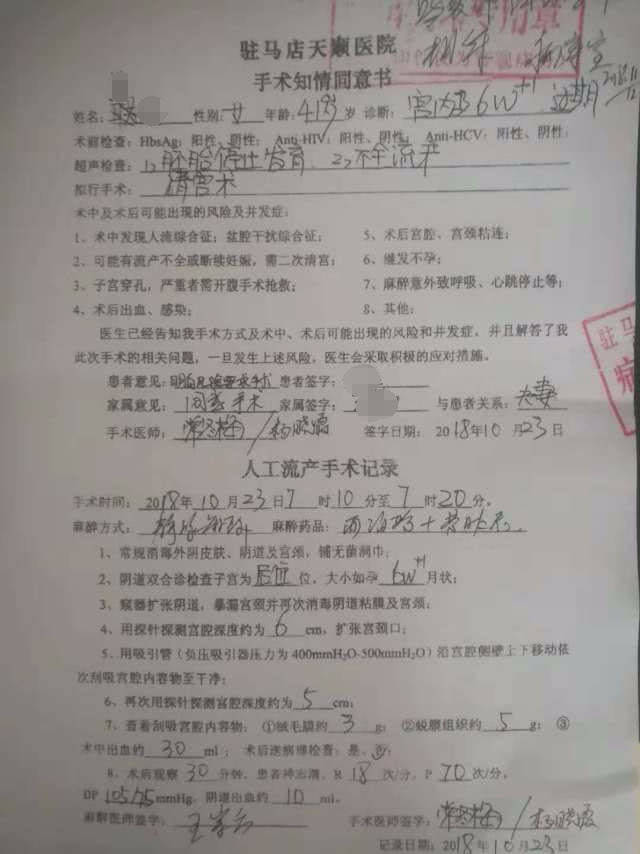 专用章
驻马店天顺医院
手术知情同意书
姓名: 性别: 女 年龄: 41岁 岁 诊断: 宫内孕6W+1
术前检查: HbsAg: 阳性、阴性; Anti-HIV: 阳性、阴性; Anti-HCV: 阳性、阴性;
超声检查: 1、胚胎停止发育 2、不全流术
拟行手术: 清宫术
术中及术后可能出现的风险及并发症:
1、术中发现人流综合征; 盆腔干扰综合征;
5、术后宫腔、宫颈粘连;
2、可能有流产不全或断续妊娠, 需二次清宫;
6、继发不孕;
3、子宫穿孔, 严重者需开腹手术抢救;
7、麻醉意外致呼吸、心跳停止等;
4、术后出血、感染;
8、其他:
医生已经告知我手术方式及术中、术后可能出现的风险和并发症, 并且解答了我
此次手术的相关问题, 一旦发生上述风险, 医生会采取积极的应对措施。
驻马
患者意见: 患者签字:
家属意见: 同意手术 家属签字: 与患者关系: 夫妻
手术医师: 签字日期: 2018年10月23日
人工流产手术记录
手术时间: 2018年10月23日7时10分至7时20分。
麻醉方式: 麻醉药品:
1、常规消毒外阴皮肤、阴道及宫颈, 铺无菌洞巾;
2、阴道双合诊检查子宫为后位位, 大小如孕6W+1月状;
3、窥器扩张阴道, 暴漏宫颈并再次消毒阴道粘膜及宫颈;
4、用探针探测宫腔深度约为6cm, 扩张宫颈口;
5、用吸引管(负压吸引器压力为400mmH₂O-500mmH₂O)沿宫腔侧壁上下移动依
次刮吸宫腔内容物至干净;
6、再次用探针探测宫腔深度约为5cm;
7、查看刮吸宫腔内容物: ①绒毛膜约3g; ②蜕膜组织约5g; ③
术中出血约30ml; 术后送病理检查: 是、否;
8、术病观察30分钟, 患者神志清, R 18次/分, P 70次/分,
BP 105/75mmHg, 阴道出血约10ml。
麻醉医师签字: 手术医师签字:
记录日期: 2018年10月23日